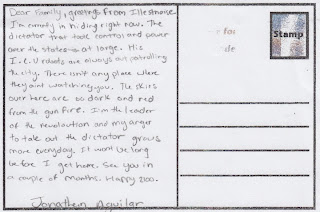 Dear Family, greetings from Illesmore.
I'm currently in hiding right now. The
dictator that took control and power
over the states is at large. His
I.C.U robots are always out patrolling
the city. There isn't any place where
they aint watching you. The skies
over here are so dark and red
from the gun fire. I'm the leader
of the revolution and my anger
to take out the dictator grows
more everyday. It won't be long
before I get home. See you in
a couple of months. Happy
Jonathen Aguilar
Stamp